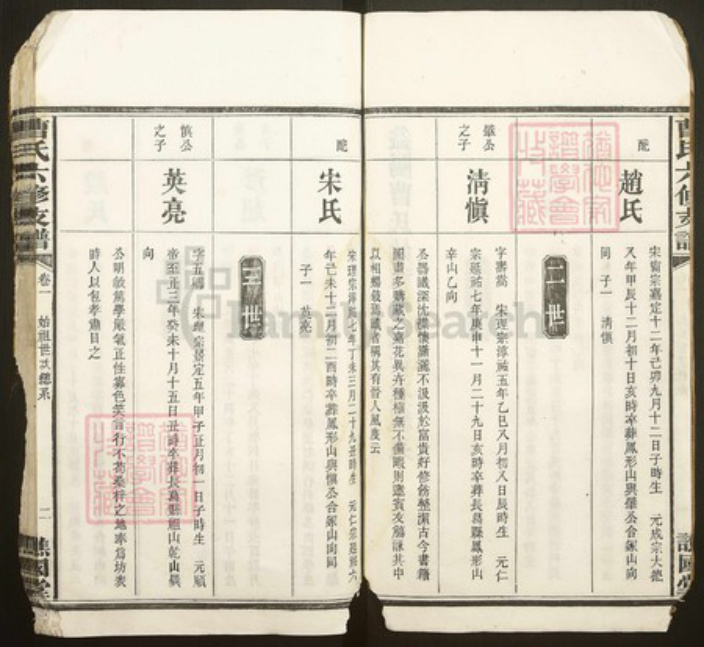 曹氏六修支譜
譙國堂
配
趙氏
宋寧宗嘉定十二年己卯九月十二日子時生 元成宗大德
八年甲辰十二月初十日亥時卒葬鳳形山與肇公合冢山向
同 子一 清慎
二世
肇公之子
清慎
字壽嵩 宋理宗淳祐五年乙巳八月初八日辰時生 元仁
宗延祐七年庚申十一月二十九日亥時卒葬長葛縣鳳形山
辛山乙向
公器識深沈襟懷瀟灑不汲汲於富貴好修飭整潔古今書籍
圖畫多購藏之嘉花異卉種植無不備暇則邀賓友觴詠其中
以相暢敘爲識者稱其有晉人風度云
配
宋氏
宋理宗淳祐七年丁未三月二十九丑時生 元仁宗延祐六
年己未十二月初二酉時卒葬鳳形山與慎公合冢山向同
子一 英亮
三世
慎公之子
英亮
字五卿 宋理宗景定五年甲子正月初一日子時生 元順
帝至正三年癸未十月十五日丑時卒葬長葛縣 山乾山巽
向
公明敏篤學嚴氣正性寡色笑言行不苟桑梓之地率爲坊表
時人以包孝肅目之
曹氏六修支譜
卷一
始祖世次總系
二
譙國堂
FamilySearch